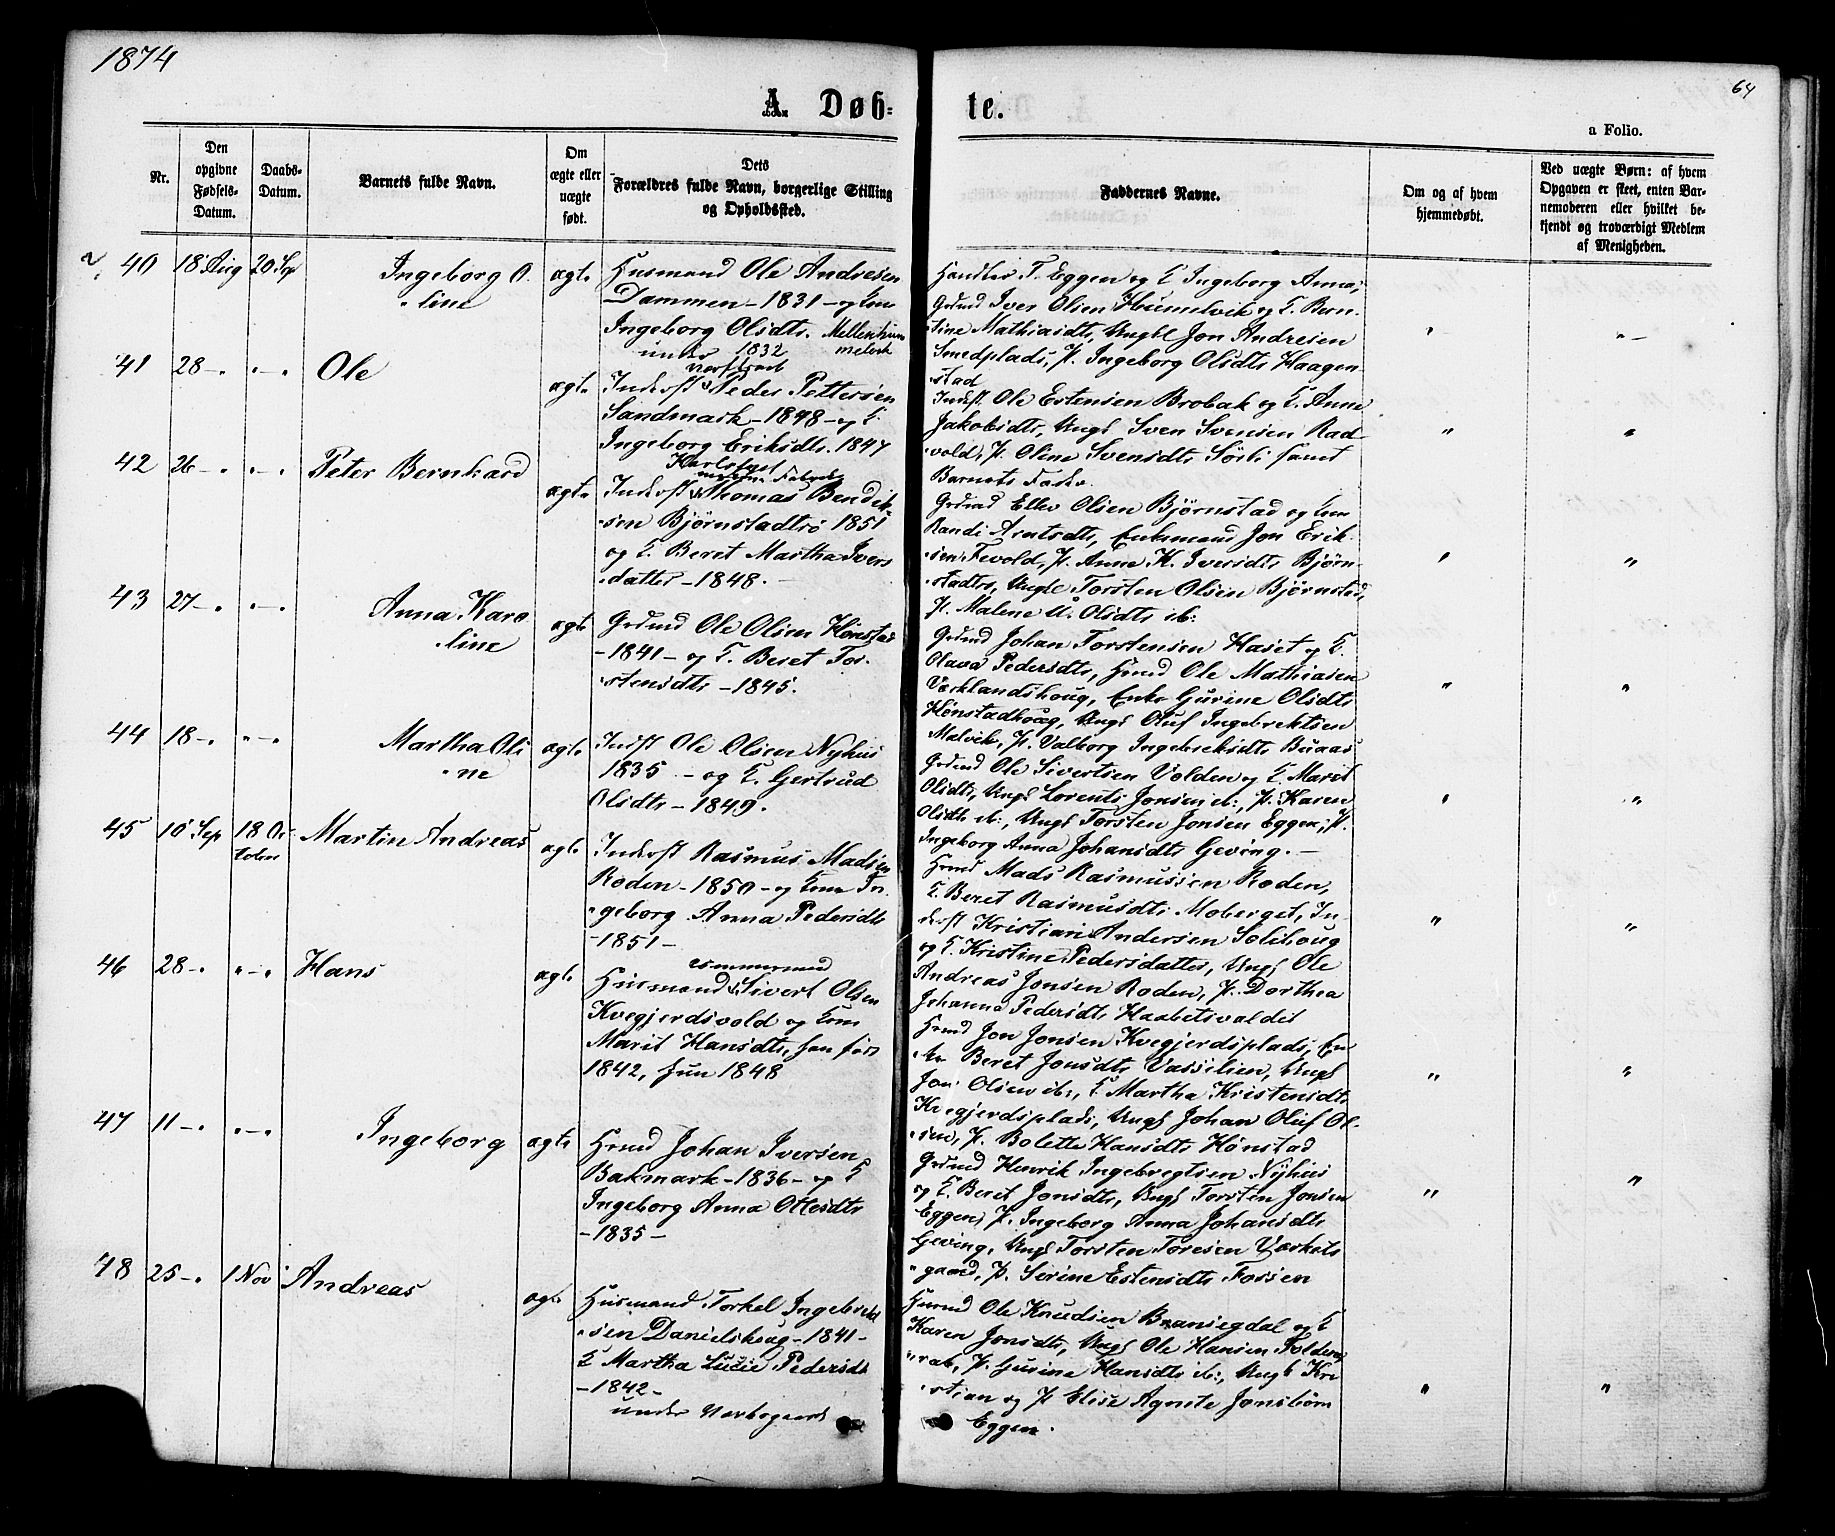 1874
64
A. Døb-
te.
a Folio.
Nr.
Den
opgivne
Fødsels-
Datum.
Daabs-
Datum.
Barnets fulde Navn.
Om
ægte eller
uægte
født.
Dets
Forældres fulde Navn, borgerlige Stilling
og Opholdssted.
Faddernes Navne.
Om og af hvem
hjemmedøbt.
Ved uægte Børn: af hvem
Opgaven er skeet, enten Bar-
nemoderen eller hvilket be-
kjendt og troværdigt Medlem
af Menigheden.
40 18 Aug 20 Sep Ingeborg O-
line
ægte
Husmand Ole Andresen
Dammen - 1831 - og Kone
Ingeborg Olsdtr.
under 1832
Handler T. Eggen og K Ingeborg Anna,
Grdmd Iver Olsen Hummelvik og K. Bern-
tine Mathiasdtr, Ungk Jon Andresen
Smedplads, P. Ingeborg Olsdtr Haagen-
stad
41 28 - " " - " Ole
ægte
Inderst Peder Pettersen
Sandmark - 1848 - og K
Ingeborg Eriksdtr. 1847
Inderst. Ole Estensen Brobak og K. Anne
Jakobsdtr, Ungk Sven Svensen Rad-
vold, P. Oline Svensdtr Sørli samt
Barnets Fader.
42 26 - " " - " Peter Bernhard
ægte
Inderst Thomas Bendik-
sen Bjørnstadtrø 1851
og K. Beret Martha Ivers-
datter - 1848. -
Grdmd Ellev Olsen Bjørnstad og Kone
Randi Arntsdtr, Enkemand Jon Erik-
sen Fevold, P. Anne K. Iversdtr Bjørn-
stadtrø, Ungk Torsten Olsen Bjørnstad,
P. Malene U. Olsdtr ib:
43 27 - " " - " Anna Karo-
line
ægte
Grdmd Ole Olsen Hønstad
- 1841 - og K. Beret Tor-
stensdtr - 1845.
Grdmd Johan Torstensen Haset og K.
Olava Pedersdtr, Hmd Ole Mathiasen
Værklandshoug, Enke Gurine Olsdtr
Hønstadhoug, Ungk Oluf Ingebrektsen
Malvik, P. Valborg Ingebrektsdtr Buaas
44 18 - " " - " Martha Oli-
ne
ægte
Inderst Ole Olsen Nyhus
1835 - og K. Gertrud
Olsdtr - 1849.
Grdmd Ole Sivertsen Volden og K. Marit
Olsdtr, Ungk Lorents Jonsen ib:, P. Karen
Olsdtr ib:, Ungk Torsten Jonsen Eggen, P.
Ingeborg Anna Johansdtr Geving. -
45 10 Sep 18 Oc-
tober
Martin Andreas
ægte
Inderst Rasmus Madsen
Roden - 1850 - og Kone In-
geborg Anna Pedersdtr
- 1851 -
Hmd Mads Rasmussen Roden,
K Beret Rasmusdtr Moberget, In-
derst Kristian Andersen Solihoug
og K. Kristine Pedersdatter, Ungk Ole
Andreas Jonsen Roden, P. Dorthea
Johanna Pedersdtr Haabetsvaldet
46 28 - " " - " Hans
ægte
tømmermand
Husmand Sivert Olsen
Kvegjerdsvold og Kone
Marit Hansdtr, han født
1842, hun 1848
Hmd Jon Jonsen Kvegjerdsplads, En-
ke Beret Jonsdtr Vassilien, Ungk
Jon Olsen ib:, K Martha Kristensdtr
Kvegjerdsplads, Ungk Johan Oluf Ol-
sen, P. Bolette Hansdtr Hønstad
47 11 - " " - " Ingeborg
ægte
Hmd Johan Iversen
Bakmark - 1836 - og K
Ingeborg Anna Ottesdtr
- 1835 -
Grdmd Henrik Ingebregtsen Nyhus
og K. Beret Jonsdtr, Ungk Torsten Jonsen
Eggen, P. Ingeborg Anna Johansdtr
Geving, Ungk Torsten Toresen Værkets
gaard, P. Serine Estensdtr Fossen
48 25 - " 1 Nov Andreas
ægte
Husmand Torkel Ingebrekt-
sen Danielshoug - 1841 -
K Martha Lucie Pedersdtr
- 1842 -
under
Husmd Ole Knudsen Bransegdal og K
Karen Jonsdtr, Ungk Ole Hansen Folden,
P. Gurine Hansdtr ib:, Ungk Kri-
stian og P. Elise Agnete Jonsbørn
Eggen.